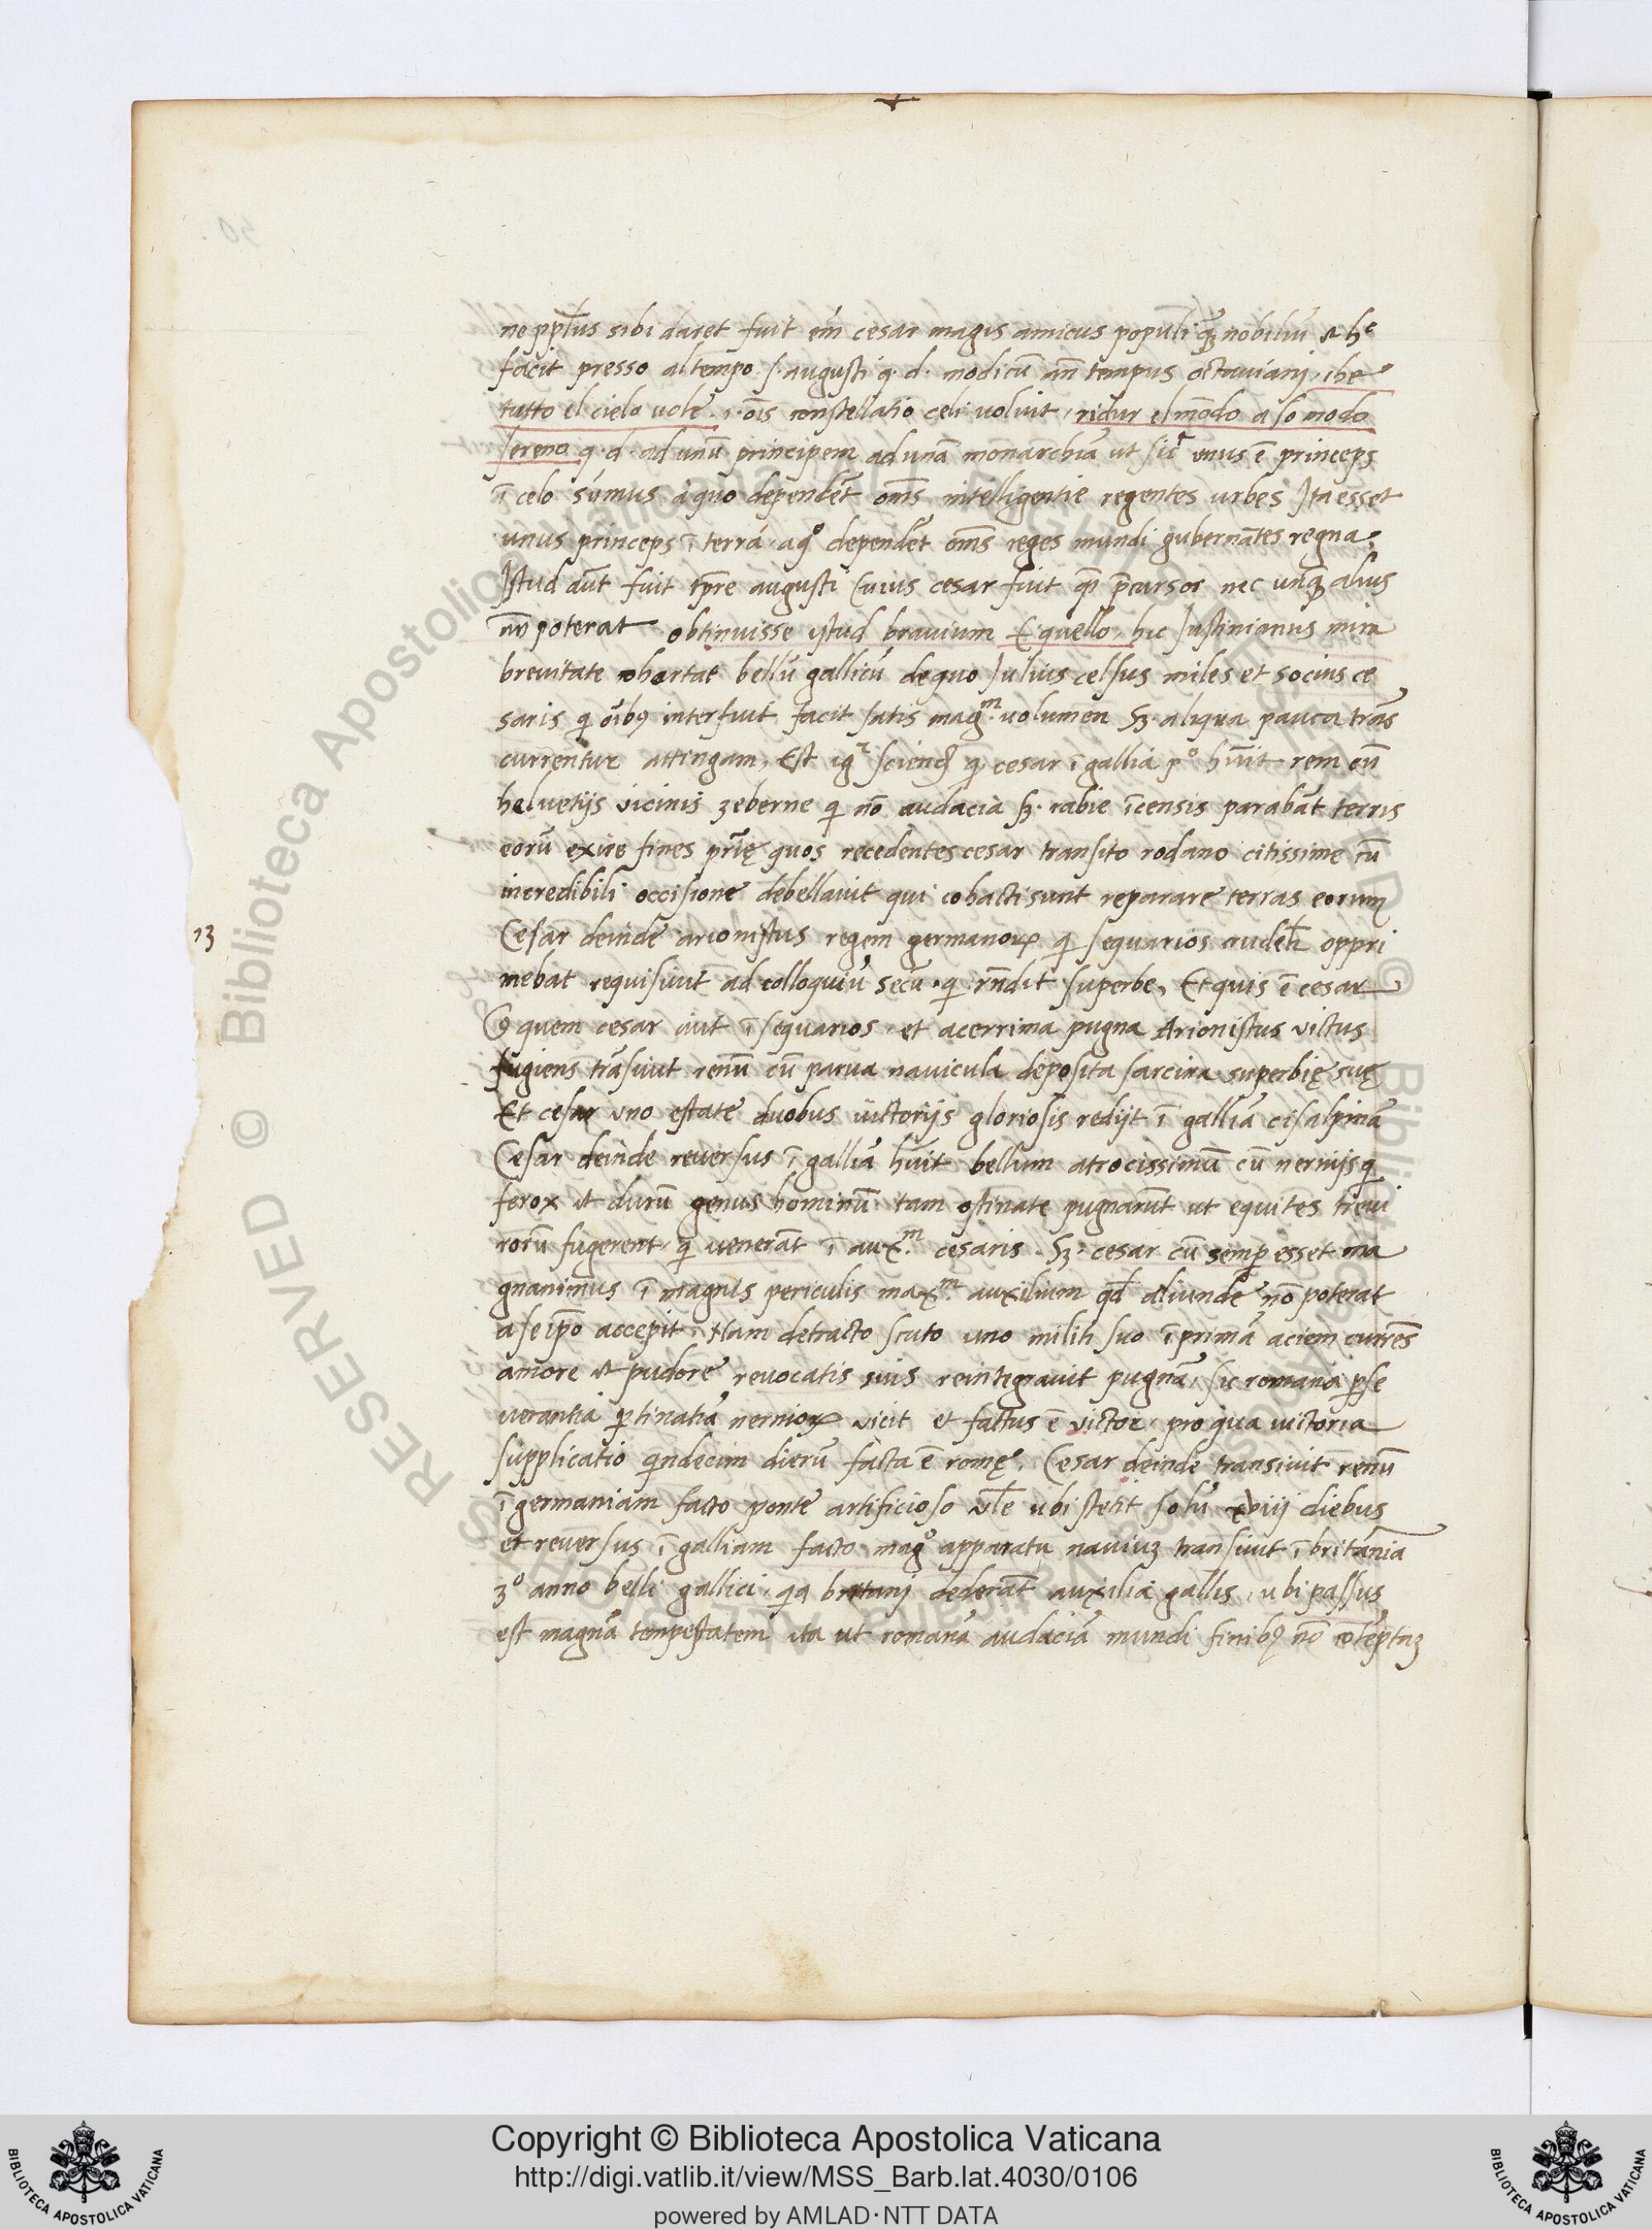 ne ppl̃us sibi daret fuit em̃ cesar magis amicus populi q̃ꝫ nobiliũ & hᶜ
facit presso al tempo .s. augusti q. d. modicũ añ tempus octauianj, che
tutto el ciel uole .i. oĩs constellatio celi voluit, ridur el mõdo a so modo
sereno q. d. ad unũ principem ad unã monarchiã ut sicᵗ vnus ẽ princeps
ĩ celo sũmus à quo dependẽt om̃s intelligentie regentes urbes Ita esset
unus princeps ĩ terra a q° dependẽt om̃s reges mundi gubernãtes regna,
Istud aũt fuit tp̃re augusti Cuius cesar fuit q̃i p̃cursor nec unq̃ꝫ alius
nõ poterat obtinuisse ystud brauium E quello, hic Justinianus mira
breuitate cohartat bellũ gallicũ de quo Julius celsus miles et socius ce
saris q̃ oĩbꝰ interfuit facit satis mag.ᵐ volumen Sꝫ. aliqua pauca trãs
currentur attingam, Est igʳ sciend̃ q̃ cesar ĩ gallia p° hũit rem cũ
heluetijs vicinis zeberne q̃ nõ audacia sꝫ. rabie ĩcensis parabãt terris
eorũ exire fines prĩę quos recedentes cesar transito rodano citissime cũ
incredibili occisione debellauit qui cohacti sunt reparare terras eorum
13
Cesar deinde arionistus regem germanoꝝ q̃ sequarios crudelr̃ oppri
mebat requisiuit ad colloquiũ secũ. q̃ rñdit superbe, Et quis ẽ cesar
Ꝯ quem cesar iuit ĩ sequarios. et acerrima pugna Arionistus victus
fugiens trãsiuit renũ cũ parua nauicula deposita sarcina superbię suę
Et cesar vno estate duobus uictorijs gloriosis redijt ĩ galliã cisalpinã
Cesar deinde reuersus ĩ galliã hũit bellum atrocissimũ cũ neruijs q̃
ferox & durũ genus hominũ tam ostinate pugnarũt ut equites treui
rorũ fugerent. q̃ uenerãt ĩ aux.ᵐ cesaris. Sꝫ. cesar cũ semp̃ esset ma
gnanimus ĩ magnis periculis max.ᵐ auxilium qd̃ aliunde nõ poterat
a se ip̃o accepit. Nam detracto scuto uno militi suo ĩ primã aciem currẽs
amore & pudore reuocatis suis reintegrauit pugnã, sic romana p̱se
uerantia p̱tinatiã neruioꝝ vicit et factus ẽ victor. pro qua uictoria
supplicatio q̃ndecim dierũ facta ẽ romę. Cesar deinde transiuit renũ
ĩ germaniam facto ponte artificioso vl̃e ubi stetit solũ xviij diebus
et reuersus ĩ galliam facto mag° apparatu nauiuꝫ transiuit ĩ britãnia
3° anno belli gallici. q̃a britanj dederãt auxilia gallis, ubi passus
est magnã tempestatem ita ut romanã audaciã mundi finibꝰ nõ cõtẽptaꝫ
Copyright © Biblioteca Apostolica Vaticana
http://digi.vatlib.it/view/MSS_Barb.lat.4030/0106
powered by AMLAD·NTT DATA